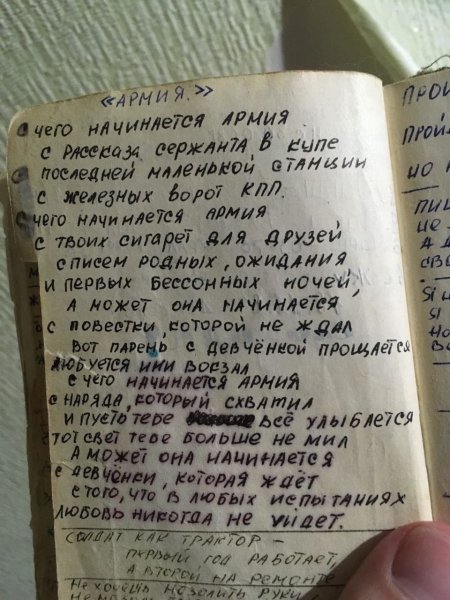 «АРМИЯ.»
чего начинается АРМИЯ
с рассказа сержанта в купе
последней маленькой станции
с железных ворот КПП.
чего начинается армия
с твоих сигарет для друзей
списем родных, ожидания
и первых бессонных ночей,
А может она начинается,
с повестки, которой не ждал
Вот парень с девчёнкой прощается
любуется ими вокзал
с чего начинается армия
с наряда, который схватил
и пусть тебе всё улыблется
этот свет тебе больше не мил
А может она начинается
с девчёнки, которая ждёт
с того, что в любых испытаниях
любовь никогда не уйдет.
СОЛДАТ КАК ТРАКТОР –
ПЕРВЫЙ ГОД РАБОТАЕТ,
А ВТОРОЙ НА РЕМОНТЕ
Не хочешь мозолить руки
ПРОЙД
но
А
SI
SI